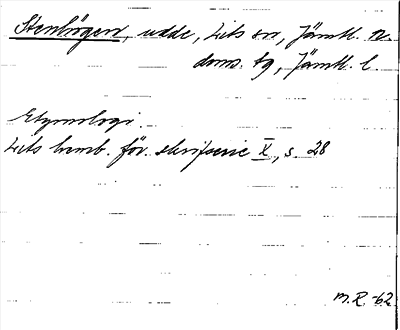 Stenhögen, udde, Lits sn, Jämtl. n.
doms. tg, Jämtl. l.
Etymologi.
Lits hemb. för. skriftserie X, s. 28
M.R. -62